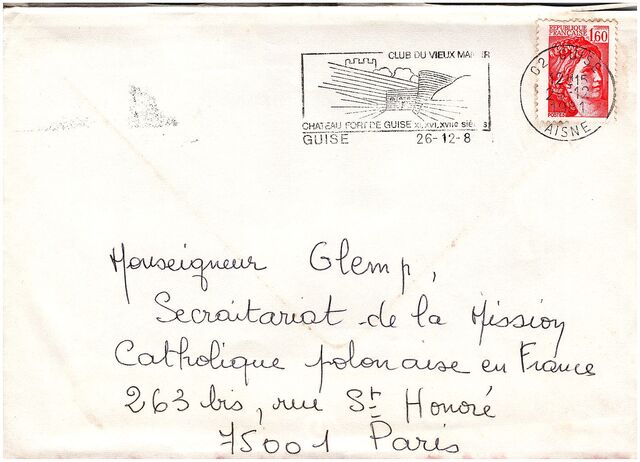 CLUB DU VIEUX MANOIR
CHATEAU FORT DE GUISE XI, XVI, XVIIe siècles
GUISE 26-12-8
REPUBLIQUE FRANÇAISE 1,60
02 GUISE
12H15
1981
AISNE
Monseigneur Glemp,
Secraitariat de la Mission
Catholique polonaise en France
263 bis, rue St Honoré
75001 Paris